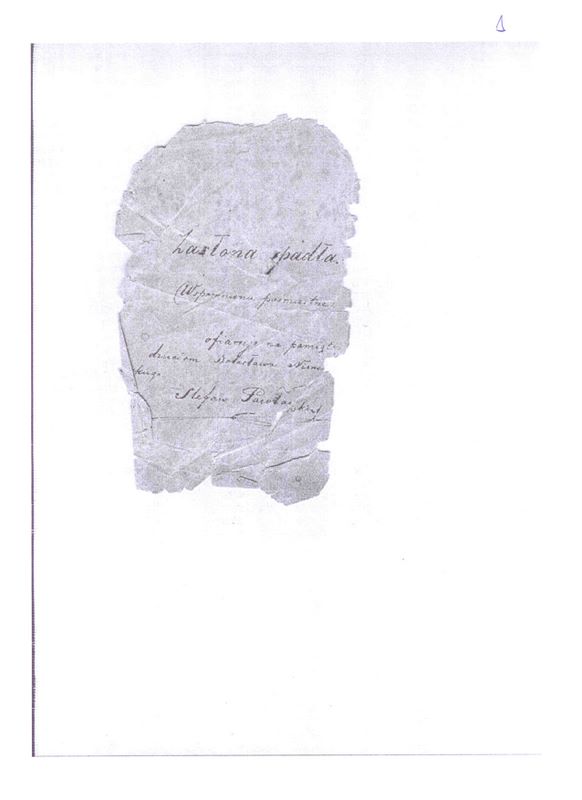 1
Zasłona spadła.
(Wspomnienia pośmiertne.
ofiaruję na pamią
dzieciom Bolesława
kiego
Stefan Pawłowski